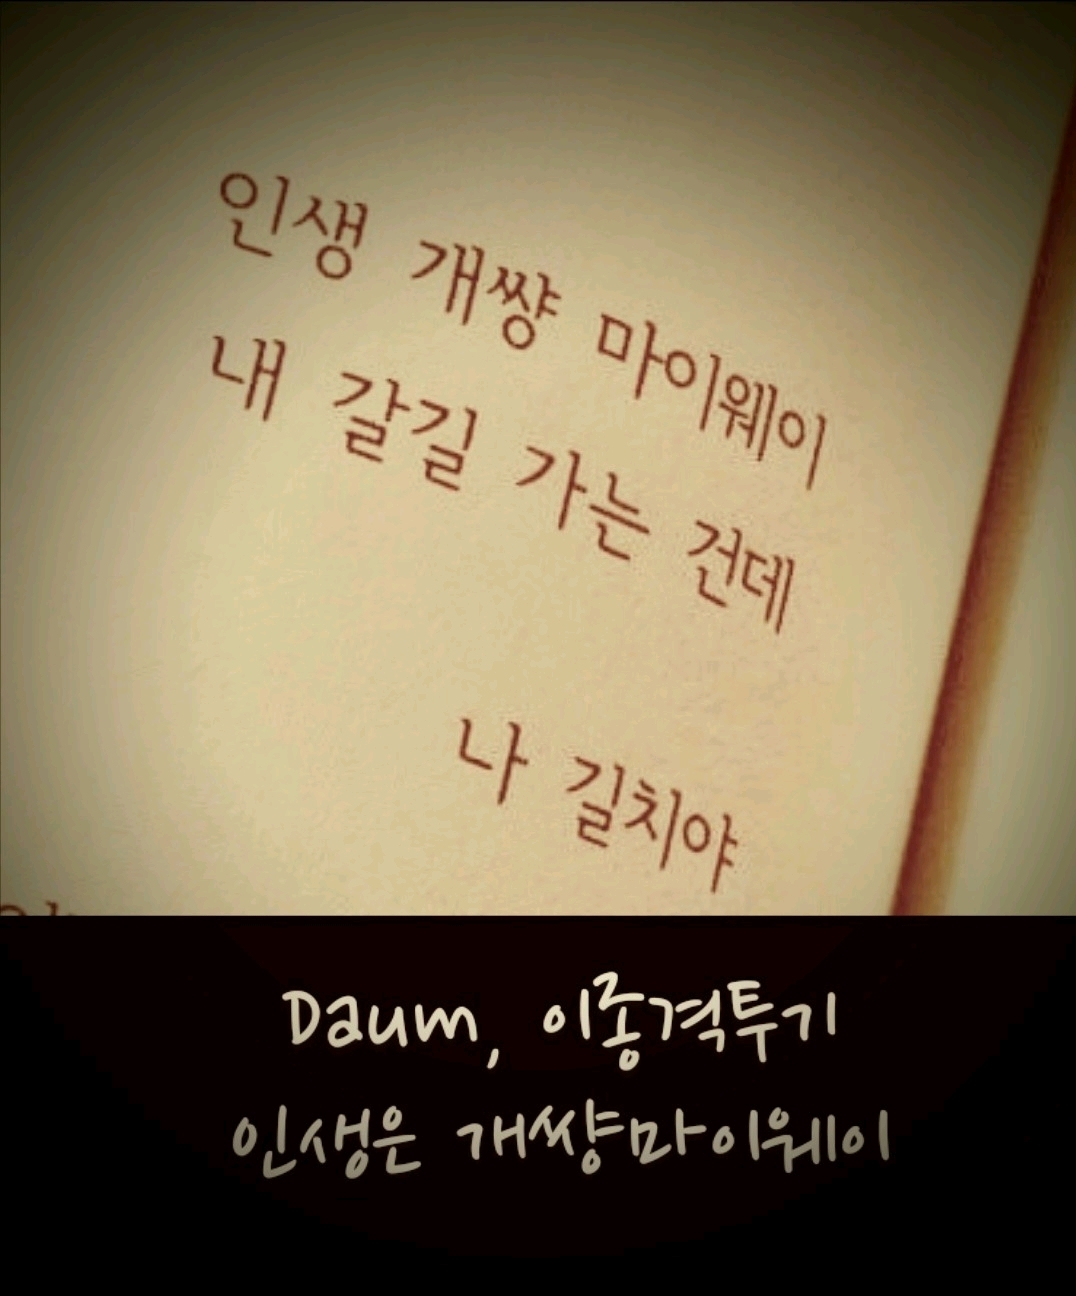 인생 개썅 마이웨이
내 갈길 가는 건데
나 길치야
Daum, 이종격투기
인생은 개썅마이웨이